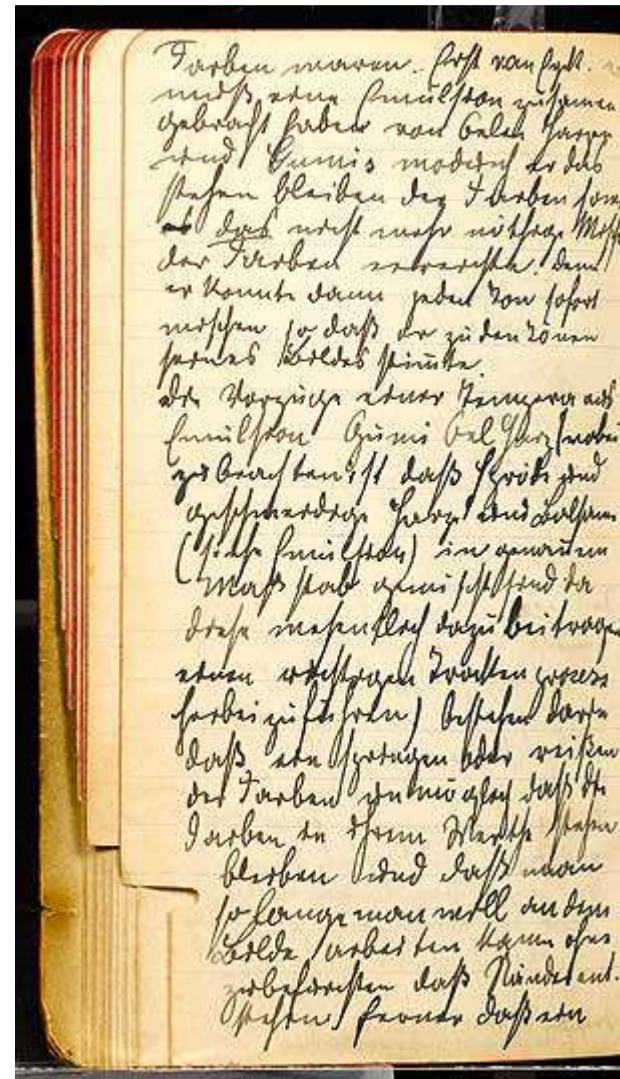 Farben waren. Erst van Eyck.
muß eine Emulsion zusamen
gebracht haben von Oelen Harzen
und Gumis wodurch er das
stehen bleiben der Farben sowie
das nicht mehr nöthige
der Farben erreichte. denn
er konnte dann jeden Ton sofort
mischen so daß er zu den Tönen
seines Bildes stimte.
die Vorzüge einer Tempera aus
Emulsion Gumi Oel Harz (wobei
zu beachten ist daß spröde und
geschmeidige Harze und Balsame
(siehe Emulsion) in genauem
Maßstab gemischt sind da
diese wesentlich dazu beitragen
einen richtigen Trockenprozess
herbeizuführen) bestehen darin
daß ein springen oder reißen
der Farben unmöglich daß die
Farben in ihrem Werthe stehen
bleiben und daß man
so lange man will an dem
Bilde arbeiten kann ohne
zu befürchten daß Ränder ent.
stehen. ferner daß ein